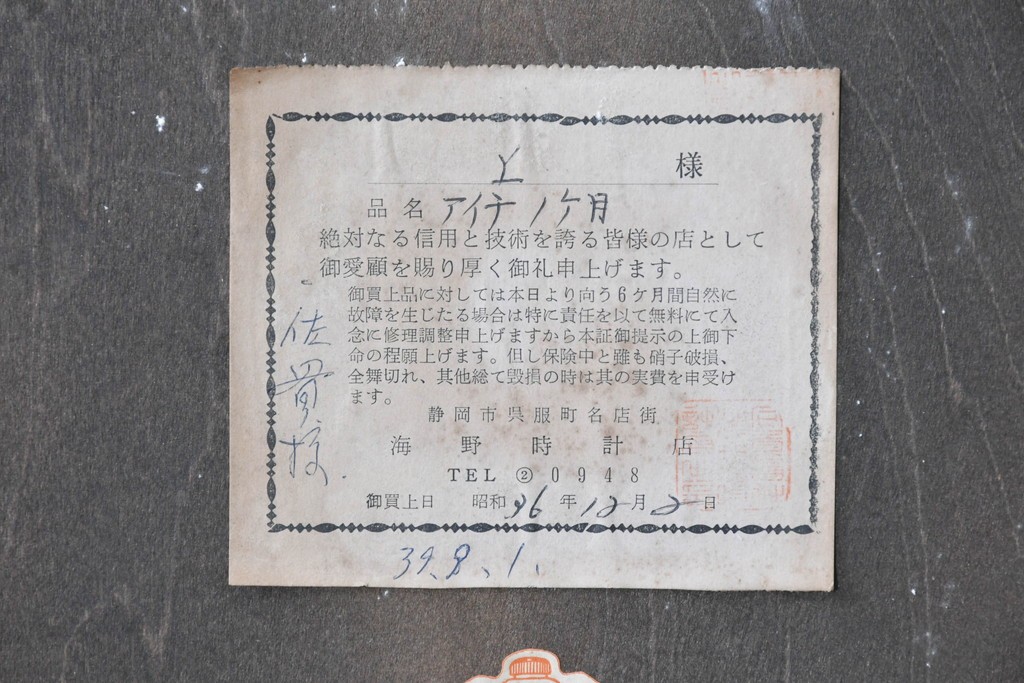 上 様
品名 アイチ 1ケ月
絶対なる信用と技術を誇る皆様の店として
御愛顧を賜り厚く御礼申上げます。
御買上品に対しては本日より向う6ケ月間自然に
故障を生じたる場合は特に責任を以て無料にて入
念に修理調整申上げますから本証御提示の上御下
命の程願上げます。但し保険中と雖も硝子破損、
全舞切れ、其他総て毀損の時は其の実費を申受け
ます。
静岡市呉服町名店街
海野時計店
TEL ②0948
御買上日 昭和36年12月2日
39.8.1.